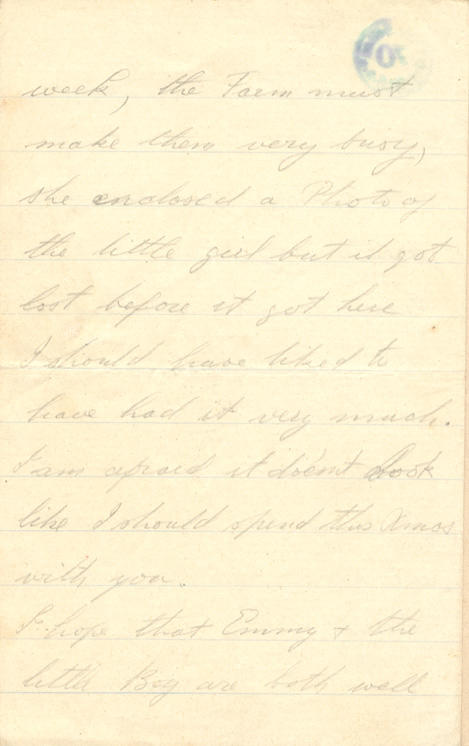 week, the Farm must
make them very busy,
she enclosed a Photo of
the little girl but it got
lost before it got here
I should have liked to
have had it very much.
I am afraid it does'nt look
like I should spend this Xmas
with you.
I hope that Emmy & the
little Boy are both well